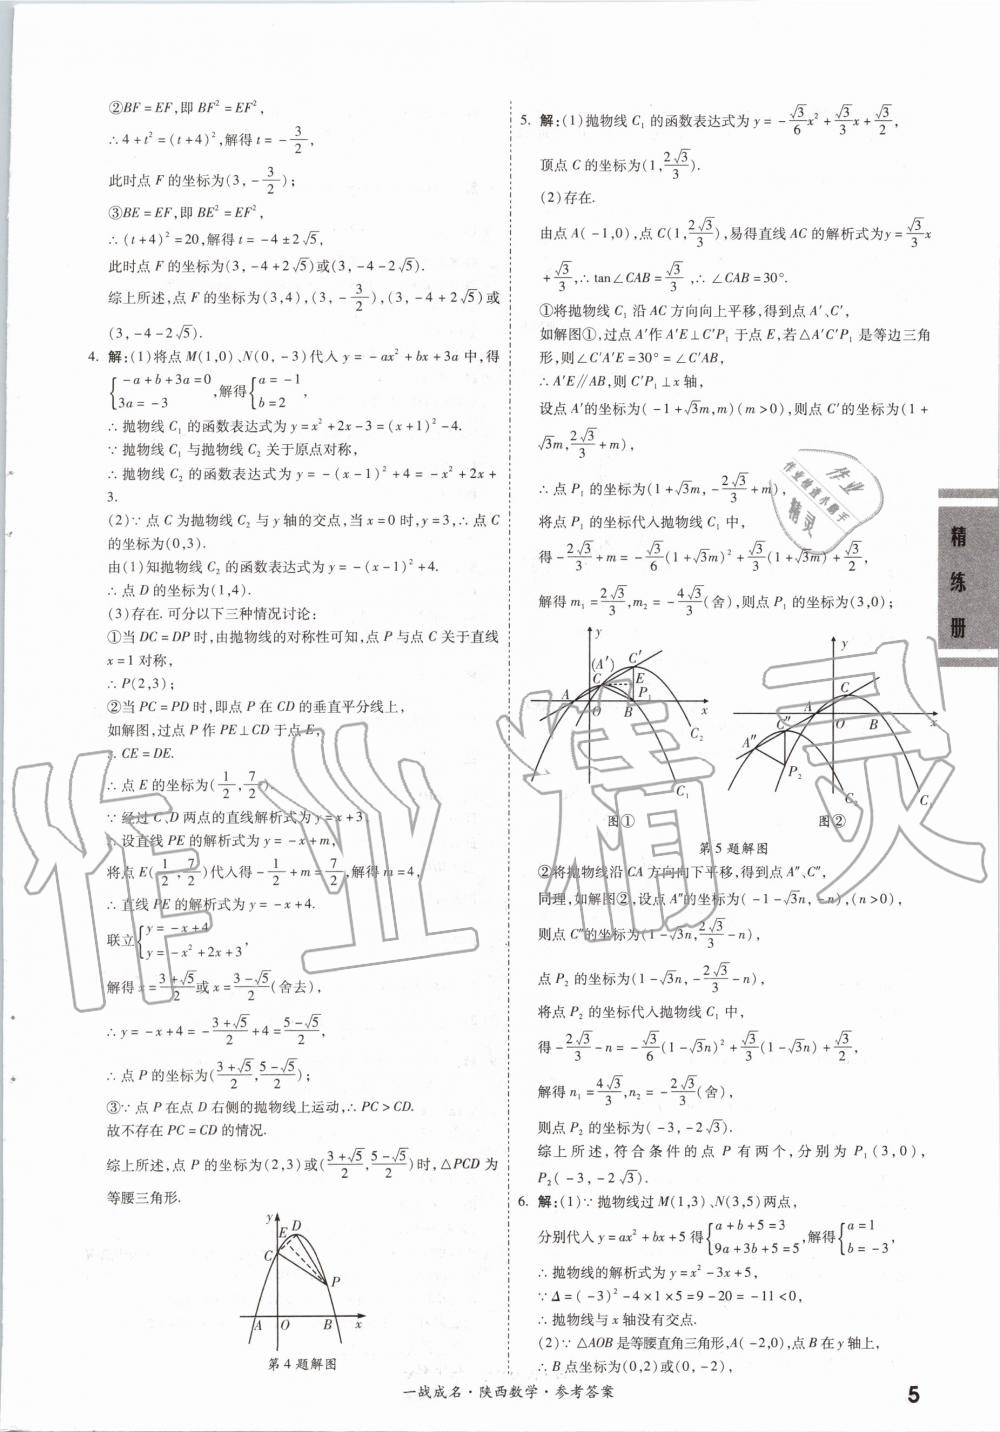 ②BF=EF,即BF²=EF²,
∴4+t²=(t+4)²,解得t=-3/2,
此时点F的坐标为(3,-3/2);
③BE=EF,即BE²=EF²,
∴(t+4)²=20,解得t=-4±2√5,
此时点F的坐标为(3,-4+2√5)或(3,-4-2√5).
综上所述,点F的坐标为(3,4),(3,-3/2),(3,-4+2√5)或
(3,-4-2√5).
4. 解:(1)将点M(1,0)、N(0,-3)代入y=-ax²+bx+3a中,得
{-a+b+3a=0
3a=-3 ,解得{a=-1
b=2 ,
∴抛物线C₁的函数表达式为y=x²+2x-3=(x+1)²-4.
∵抛物线C₁与抛物线C₂关于原点对称,
∴抛物线C₂的函数表达式为y=-(x-1)²+4=-x²+2x+
3.
(2)∵点C为抛物线C₂与y轴的交点,当x=0时,y=3,∴点C
的坐标为(0,3).
由(1)知抛物线C₂的函数表达式为y=-(x-1)²+4.
∴点D的坐标为(1,4).
(3)存在.可分以下三种情况讨论:
①当DC=DP时,由抛物线的对称性可知,点P与点C关于直线
x=1对称,
∴P(2,3);
②当PC=PD时,即点P在CD的垂直平分线上,
如解图,过点P作PE⊥CD于点E,
∴CE=DE.
∴点E的坐标为(1/2,7/2).
∵经过C、D两点的直线解析式为y=x+3,
∴设直线PE的解析式为y=-x+m,
将点E(1/2,7/2)代入得-1/2+m=7/2,解得m=4,
∴直线PE的解析式为y=-x+4.
联立{y=-x+4
y=-x²+2x+3 ,
解得x=(3+√5)/2或x=(3-√5)/2(舍去),
∴y=-x+4=-(3+√5)/2+4=(5-√5)/2,
∴点P的坐标为((3+√5)/2,(5-√5)/2);
③∵点P在点D右侧的抛物线上运动,∴PC>CD.
故不存在PC=CD的情况.
综上所述,点P的坐标为(2,3)或((3+√5)/2,(5-√5)/2)时,△PCD为
等腰三角形.
y
E D
C
P
A O B x
第4题解图
5. 解:(1)抛物线C₁的函数表达式为y=-√3/6x²+√3/3x+√3/2,
顶点C的坐标为(1,2√3/3).
(2)存在.
由点A(-1,0),点C(1,2√3/3),易得直线AC的解析式为y=√3/3x
+√3/3,∴tan∠CAB=√3/3,∴∠CAB=30°.
①将抛物线C₁沿AC方向向上平移,得到点A′、C′,
如解图①,过点A′作A′E⊥C′P₁于点E,若△A′C′P₁是等边三角
形,则∠C′A′E=30°=∠C′AB,
∴A′E∥AB,则C′P₁⊥x轴,
设点A′的坐标为(-1+√3m,m)(m>0),则点C′的坐标为(1+
√3m,2√3/3+m),
∴点P₁的坐标为(1+√3m,-2√3/3+m),
将点P₁的坐标代入抛物线C₁中,
得-2√3/3+m=-√3/6(1+√3m)²+√3/3(1+√3m)+√3/2,
解得m₁=2√3/3,m₂=-4√3/3(舍),则点P₁的坐标为(3,0);
y
(A′) C′
C E
A P₁
O B x
C₂
C₁
图①
y
C
A O B x
C″
A″
P₂
C₂ C
图②
第5题解图
②将抛物线沿CA方向向下平移,得到点A″、C″,
同理,如解图②,设点A″的坐标为(-1-√3n,-n),(n>0),
则点C″的坐标为(1-√3n,2√3/3-n),
点P₂的坐标为(1-√3n,-2√3/3-n),
将点P₂的坐标代入抛物线C₁中,
得-2√3/3-n=-√3/6(1-√3n)²+√3/3(1-√3n)+√3/2,
解得n₁=4√3/3,n₂=-2√3/3(舍),
则点P₂的坐标为(-3,-2√3).
综上所述,符合条件的点P有两个,分别为P₁(3,0),
P₂(-3,-2√3).
6. 解:(1)∵抛物线过M(1,3)、N(3,5)两点,
分别代入y=ax²+bx+5得{a+b+5=3
9a+3b+5=5 ,解得{a=1
b=-3 ,
∴抛物线的解析式为y=x²-3x+5,
∵Δ=(-3)²-4×1×5=9-20=-11<0,
∴抛物线与x轴没有交点.
(2)∵△AOB是等腰直角三角形,A(-2,0),点B在y轴上,
∴B点坐标为(0,2)或(0,-2),
精练册
作业
作业检查小助手
精灵
作业精灵
一战成名·陕西数学·参考答案
5